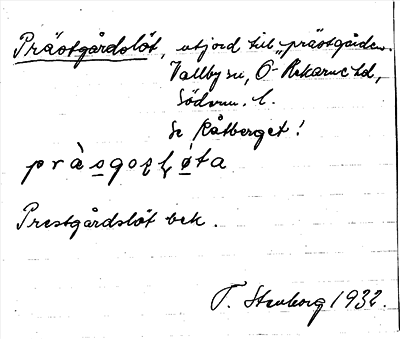 Prästgårdslöt, utjord till "prästgården.
Vallby sn, Ö-Rekarne hd,
Södrm. l.
Se Råtberget!
pràsgoɽɬø̀ta
Prestgårdslöt bek.
T. Stenborg 1932.